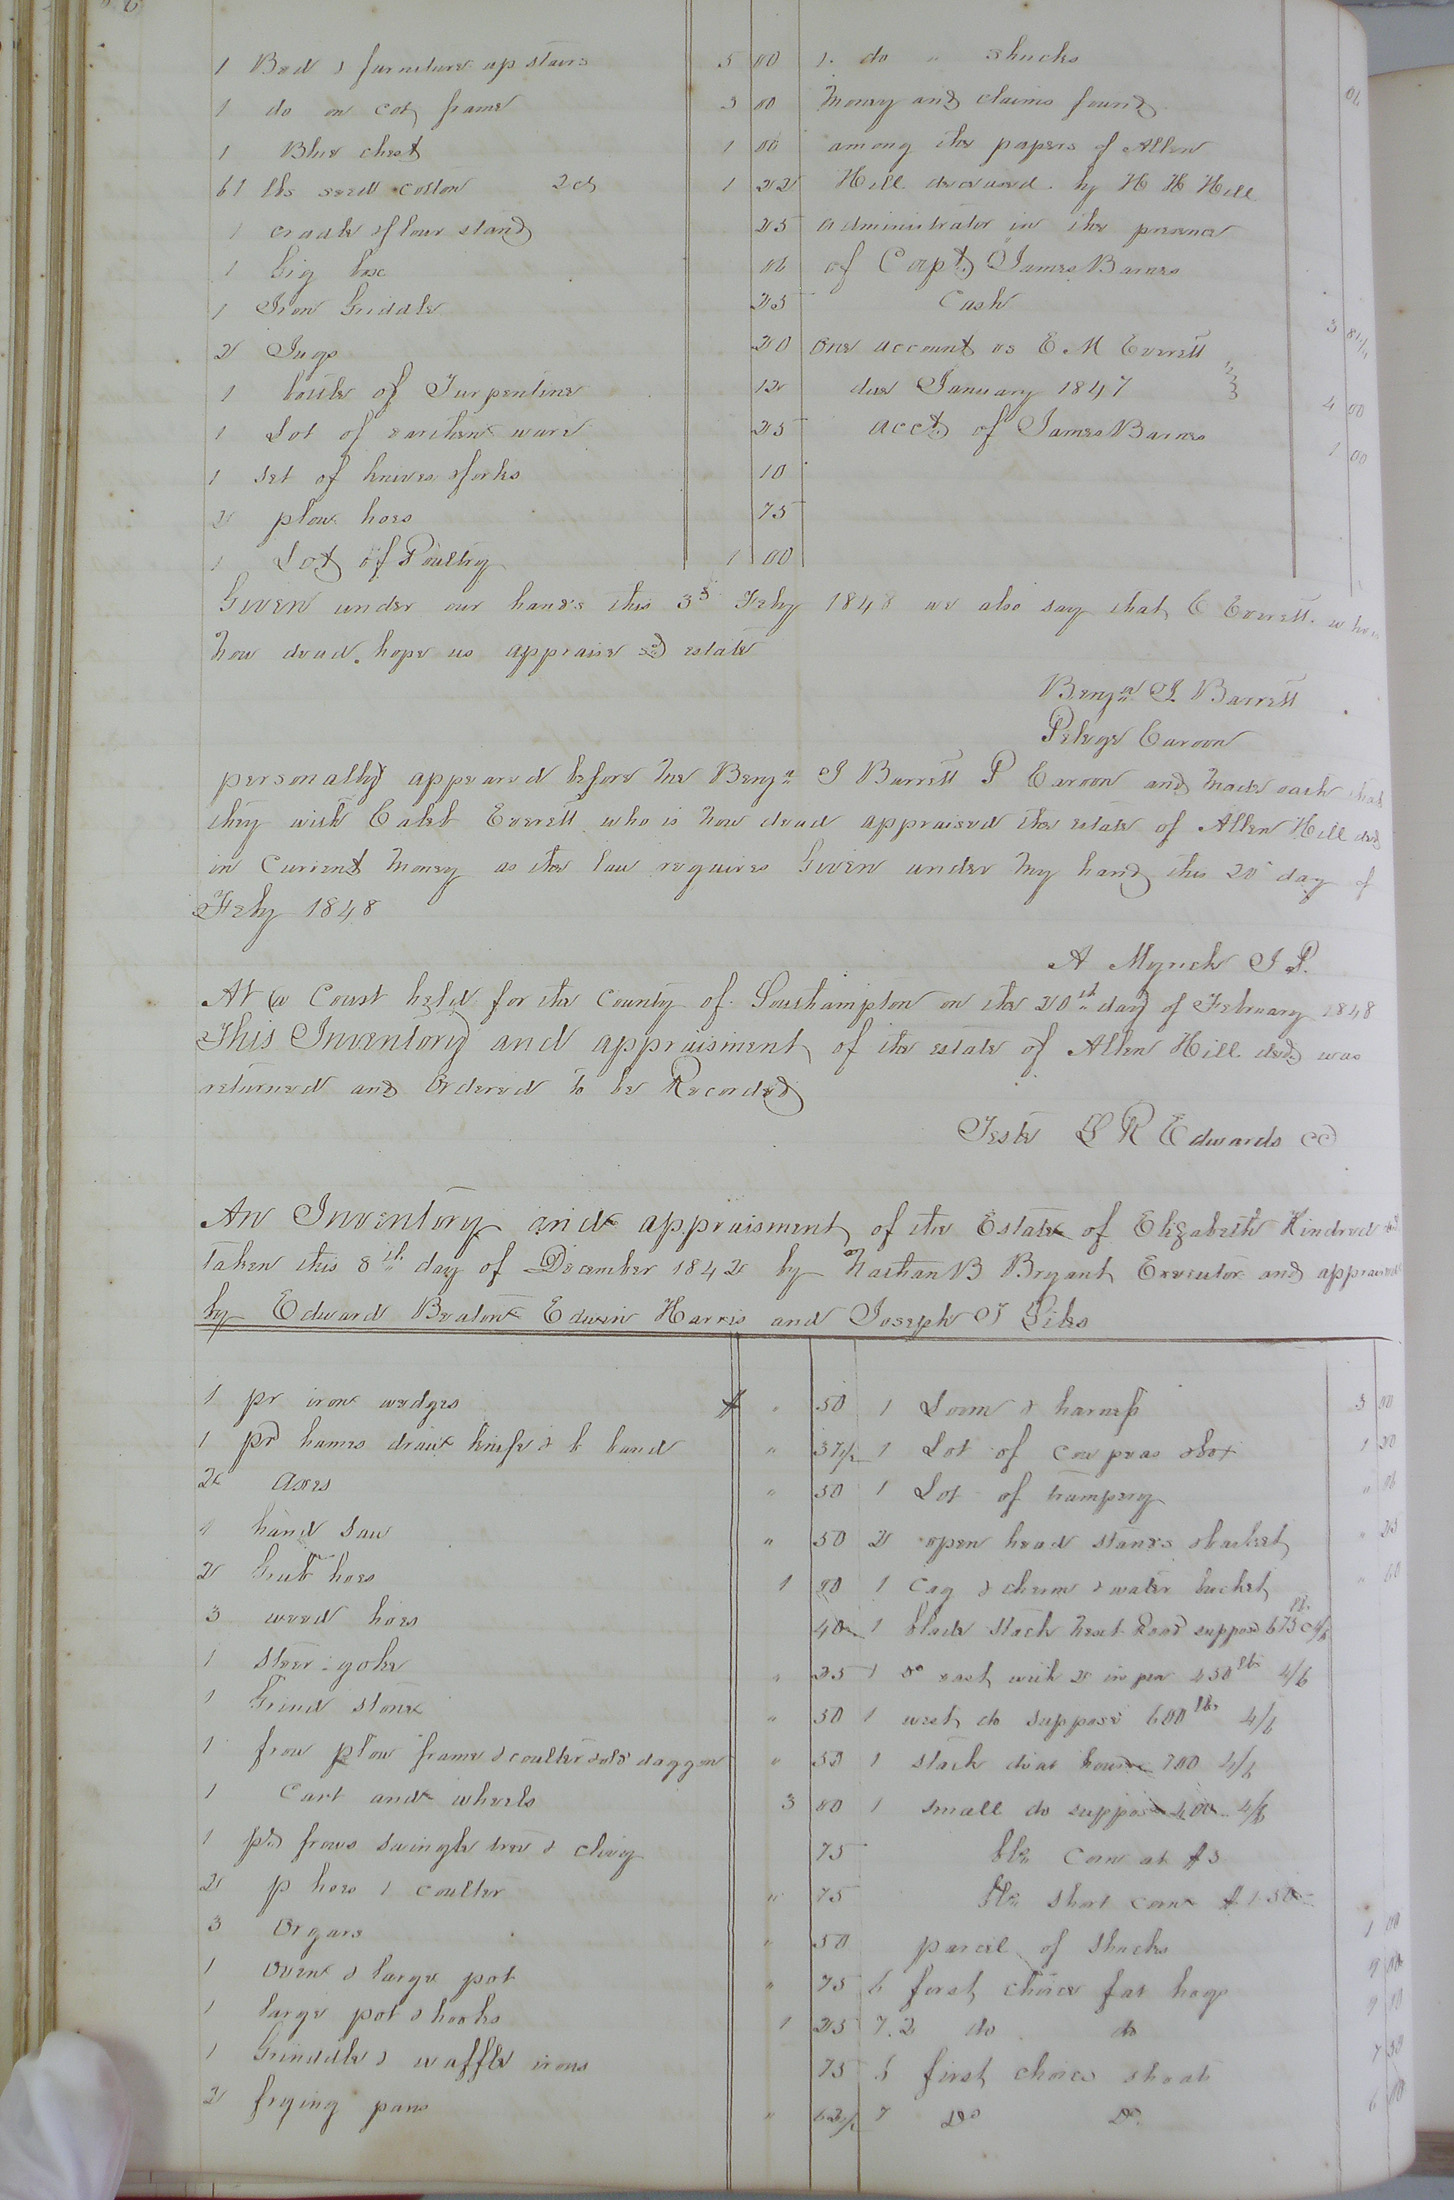 1 Bed & furniture up stairs 5 00
1 do on cot frame 3 00
1 Blue chest 1 00
61 lbs seed cotton 2 cts 1 22
1 cradle & flour stand 25
1 big box 06
1 Iron Griddle 25
2 Jugs 20
1 bottle of Turpentine 12
1 Lot of earthen ware 25
1 set of knives & forks 10
2 plow hoes 75
1 Lot of Poultry 1 00
1 do " shucks
Money and claims found
among the papers of Allen
Hill deceased by H H Hill
administrator in the presence
of Capt James Barnes
Cash 3
One account vs E. M Everett
due January 1847 4 00
acct of James Barnes 1 00
Given under our hands this 3d Feby 1848 we also say that C Everett who is
now dead. hope us appraise sd estate
Benja J Barrett
Pelege Earoon
personally appeared before me Benja J Barrett P Earoon and made oath that
they with Caleb Everett who is now dead appraised the estate of Allen Hill decd
in Current money as the law requires Given under my hand this 20 day of
Feby 1848
A Myrick J P.
At a Court held for the County of Southampton on the 20th day of February 1848
This Inventory and appraisment of the estate of Allen Hill decd was
returned and Ordered to be Recorded
Teste L R Edwards cc
An Inventory and appraisment of the Estate of Elizabeth Kindred
taken this 8th day of December 1842 by Nathan B Bryant Executor and appraised
by Edward Beaton Edwin Harris and Joseph T Liles
1 pr iron wedges $ " 50
1 pr hames draw knife & b band " 37 1/2
2 axes " 50
1 hand saw " 50
2 Grub hoes 1 00
3 weed hoes 40
1 steer yoke " 25
1 Grind stone " 50
1 frow plow frame & coulter & old daggon " 50
1 Cart and wheels 3 00
1 pr frows swingle tree & clivey 75
2 p hoes 1 coulter " 75
3 Orgars " 50
1 Oven & large pot " 75
1 large pot & hooks 1 25
1 Griddle & waffle irons 75
2 frying pans " 62 1/2
1 Loom & harness 3 00
1 Lot of cow peas & box 1 20
1 Lot of trumpery " 06
2 open head stands & basket " 25
1 Cag & churn & water bucket " 60
1 blade stack next Road suppose 675 lbs 4/6
1 do east with 2 in pen 450 lbs 4/6
1 west do suppose 600 lbs 4/6
1 stack do at house 700 4/6
1 small do suppose 400 4/6
bls Corn at $3
bls short corn $1.50
parcel of shucks 1 00
6 first choice fat hogs 9 00
7. 2 do do 9 00
6 first choice shoats 7 50
7 Do Do 6 00